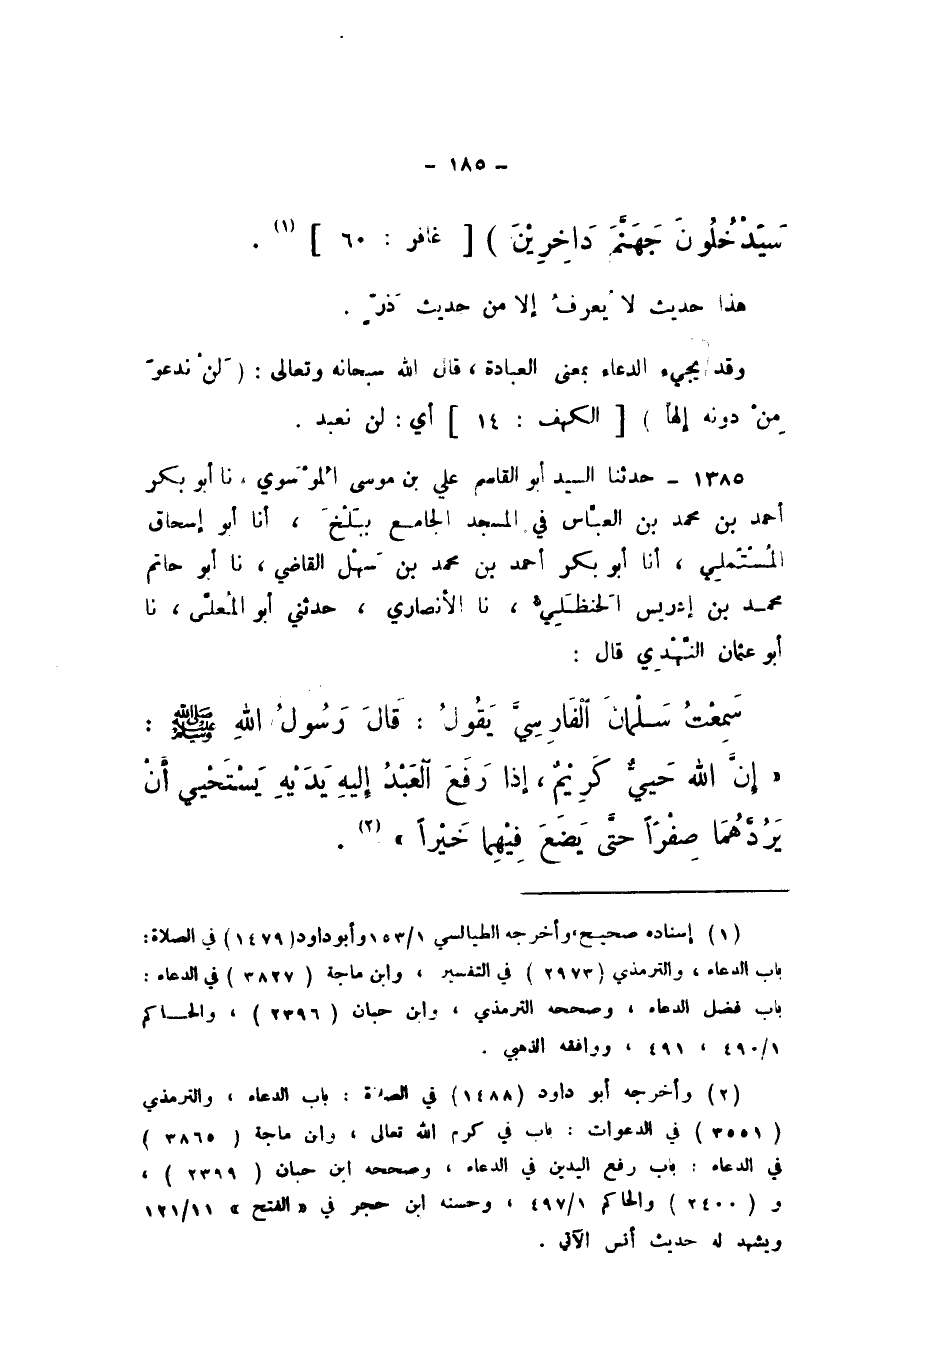 - ١٨٥ -
سَيَدْخُلُونَ جَهَنَّمَ دَاخِرِيْنَ ) [ غافر : ٦٠ ] (١) .
هذا حديث لا يُعرفُ إلا من حديث ذَرٍّ .
وقد يجيء الدعاء بمعنى العبادة ، قال الله سبحانه وتعالى : ( لَنْ ندعوَ
مِنْ دونه إلهاً ) [ الكهف : ١٤ ] أي : لن نعبد .
١٣٨٥ - حدثنا السيد أبو القاسم علي بن موسى الْمُوْسَوي ، نا أبو بكر
أحمد بن محمد بن العبّاس في المسجد الجامع بِبَلْخَ ، أنا أبو إسحاق
الْمُسْتَملي ، أنا أبو بكر أحمد بن محمد بن سَهْل القاضي ، نا أبو حاتم
محمد بن إدريس الْحَنظَلِيُّ ، نا الأنصاري ، حدثني أبو الْمُعلّى ، نا
أبو عثمان النَّهْدِي قال :
سَمِعْتُ سَلْمَانَ اَلْفَارِسِيَّ يَقُولُ : قَالَ رَسُولُ اللهِ ﷺ :
« إِنَّ اللهَ حَيِيٌّ كَرِيْمٌ ، إذا رَفَعَ اَلْعَبْدُ إليهِ يَدَيْهِ يَسْتَحْيِي أَنْ
يَرُدَّهُمَا صِفْرَاً حتَّى يَضَعَ فِيْهِما خَيْراً » (٢) .
(١) إسناده صحيح، وأخرجه الطيالسي ١٥٣/١ وأبو داود (١٤٧٩) في الصلاة:
باب الدعاء ، والترمذي ( ٢٩٧٣ ) في التفسير ، وابن ماجة ( ٣٨٢٧ ) في الدعاء :
باب فضل الدعاء ، وصححه الترمذي ، وابن حبان ( ٢٣٩٦ ) ، والحاكم
٤٩٠/١ ، ٤٩١ ، ووافقه الذهبي .
(٢) وأخرجه أبو داود (١٤٨٨) في الصلاة : باب الدعاء ، والترمذي
( ٣٥٥١ ) في الدعوات : باب في كرم الله تعالى ، وابن ماجة ( ٣٨٦٥ )
في الدعاء : باب رفع اليدين في الدعاء ، وصححه ابن حبان ( ٢٣٩٩ ) ،
و ( ٢٤٠٠ ) والحاكم ٤٩٧/١ ، وحسنه ابن حجر في « الفتح » ١٢١/١١
ويشهد له حديث أنس الآتي .